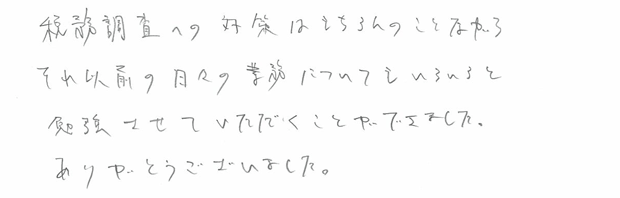 税務調査への対策はもちろんのことながら
それ以前の日々の業務についてもいろいろと
勉強させていただくことができました。
ありがとうございました。